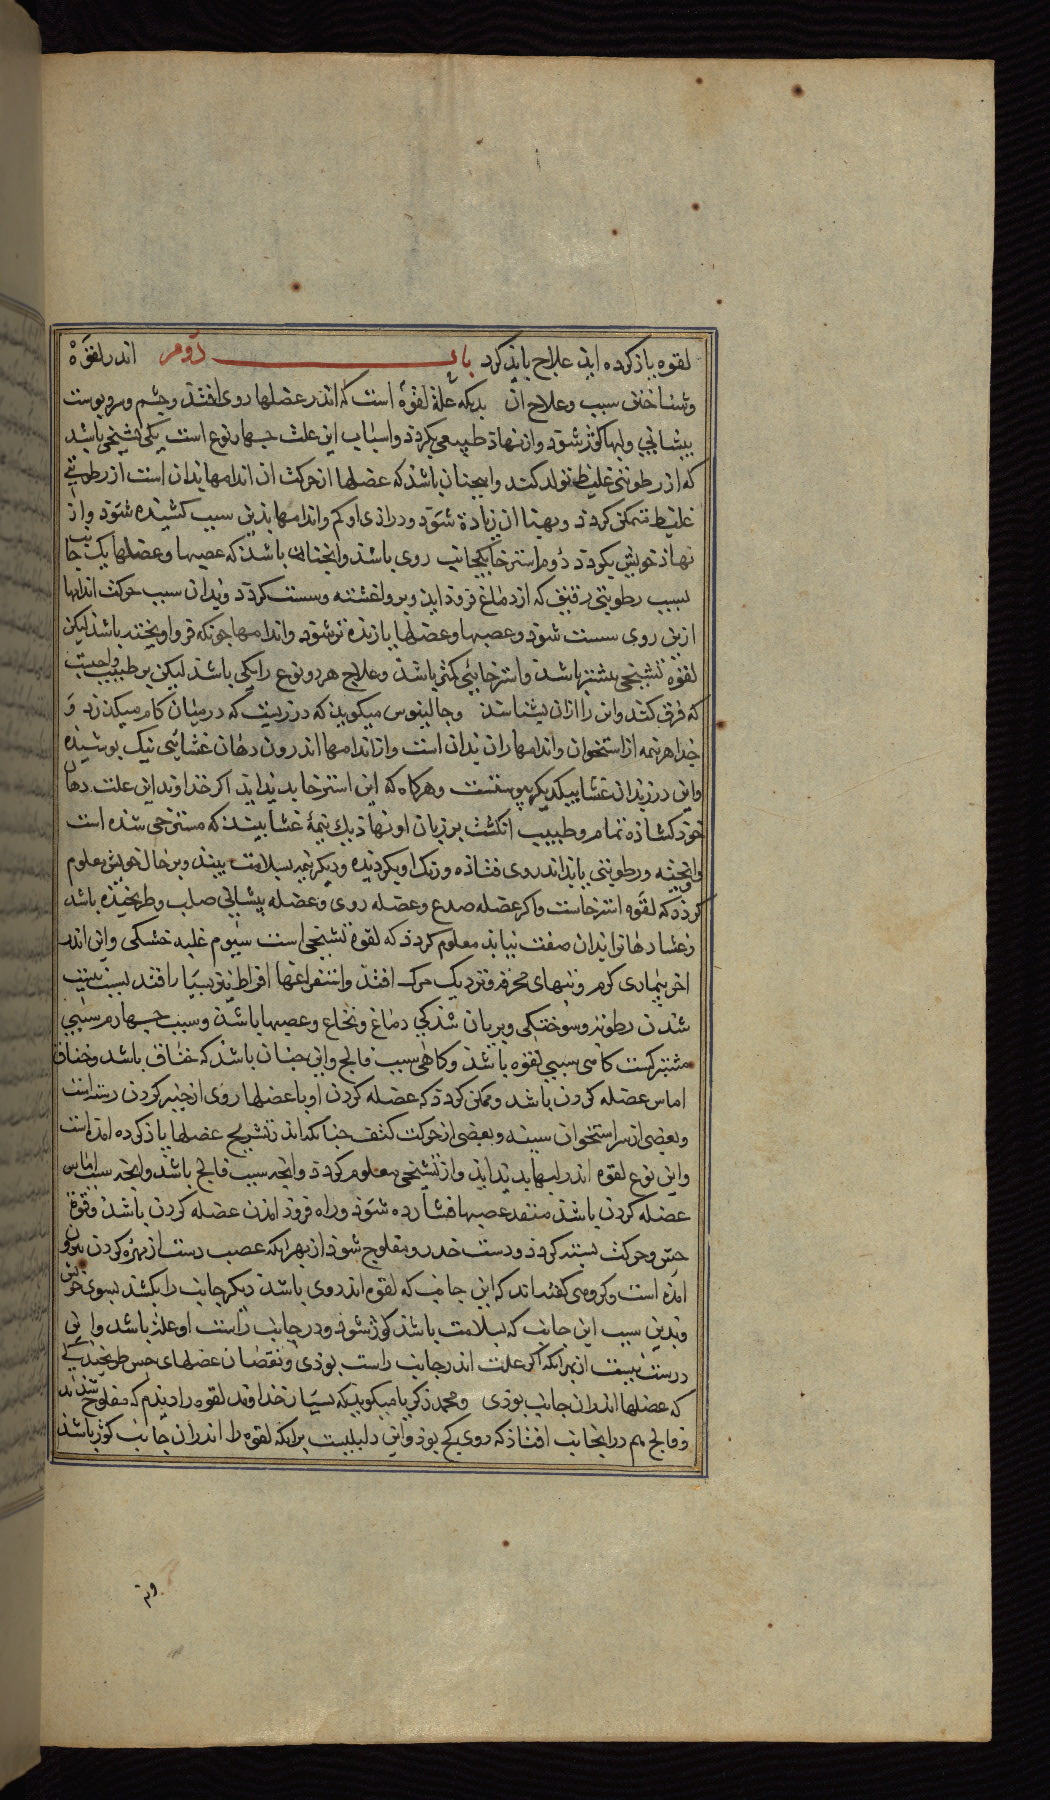 لقوه یاذ کرده اید علاج باید کرد باب دوم اندر لقوه
وشناختن سبب وعلاج ان بدانکه علة لقوه است که اندر عضلها روی افتد وچشم وسر وپوست
پیشانی ولبها کوژ شود واز نهاد طبیعی بکردد واسباب این علت چهار نوع است یکی تشنجی باشد
که از رطوبتی غلیظ تولد کند وانچنان باشد که عضلها از حرکت ان اندامها بدان است از رطوبتی
غلیظ ممتلی کردد وپهنا ان زیادة شود ودرازی او کم واندامها بدین سبب کشیده شود واز
نهاد خویش بکردد دوم استرخا یکجانب روی باشد وانچنان باشد که عصبها وعضلها یک جانب
بسبب رطوبتی رقیق که از دماغ فروذ اید وبر واغشته وسست کردد وبدان سبب حرکت اندامها
ازین روی سست شود وعصبها وعضلها یازنده تر شود واندامها جونکه فرو اویخته باشد لیکن
لقوه تشنجی بیشتر باشد واسترخایی کمتر باشد وعلاج هر دو نوع را یکی باشد لیکن بر طبیب واجبست
که فرق کند واین را از ان بشناسد وجالینوس میکوید که درزیست که در میان کام میکذرد و
جدا هر نیمه از استخوان واندامها ران بدان است وازاندامها اندرون دهان غشائیی نیک پوشیده
واین درز بدان غشا بیکدیکر پیوستست وهرکاه که این استرخا پدید اید اکر خداوند این علت دهان
خود کشاده تمام وطبیب انکشت بر زبان او نهاد یک نیمۀ غشا بیند که مسترخی شده است
واویخته ورطوبتی یابد اندر وی فتاذه ورنک او بکردیده ودیکر نیمه بسلامت بیند وبر حال خویش معلوم
کردد که لقوه استرخاست واکر عضله صدع وعضله روی وعضله پیشانی صلب وطرنجیده باشد
وغشا دهان را بدان صفت نیابد معلوم کردد که لقوه تشنجی است سیوم غلبه خشکی واین اندر
اخر بیماری کرم وتبهای محرقه ونزدیک مرک افتد واستفراغها افراط نیز بسیار افتد بسبب نیست
شدن رطوبتها وسوختکی وبریان شدکی دماغ ونخاع وعصبها باشد وسبب چهارم سببی
مشترکست کاهی سببی لقوه باشد وکاهی سبب فالج واین چنان باشد که خناق باشد وخناق
اماس عضله کردن باشد وممکن کردد که عضله کردن او با عضلها روی از چنبر کردن رسته است
وبعضی از سر استخوان سینه وبعضی از حرکت کتف چنانکه اندر تشریح عضلها یاذ کرده امده است
واین نوع لقوه اندر لبها پدید اید واز تشنجی معلوم کردد وانچه سبب فالج باشد وانچه سبب اماس
عضله کردن باشد منفذ عصبها فشارده شود وراه فروذ امدن عضله کردن باشد وقوۃ
حس وحرکت بسته کردد ودست خدر ومفلوج شود از بهر انکه عصب دست از مهره کردن بیرون
امده است وکروهی کفته اند که این جانب که لقوه اندر وی باشد دیکر جانب را بکشد بسوی خویش
وبدین سبب این جانب که بسلامت باشد کوژ شود ودر جانب راست او علت باشد واین
درست نیست از بهر انکه اکر علت اندر جانب راست بودی ونقصان عضلهای حس طرنجیدکی
که عضلها اندر ان جانب بودی ومحمد زکریا میکوید که بسیار خداوند لقوه را دیدم که مفلوج شدند
وفالج هم در انجانب افتاد که روی کج بود واین دلیلیست برانکه لقوه را اندران جانب کوژ باشد
وتر